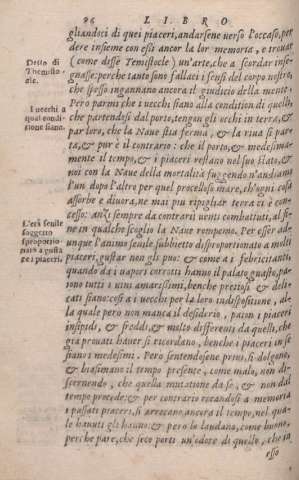 96 LIBRO
gliandosi di quei piaceri, andarsene verso l'occaso, per
dere insieme con essi ancor la lor memoria, e trouar
(come disse Temistocle) un'arte, che a scordar inse-
gnasse: perche tanto sono fallaci i sensi del corpo nostro,
che spesso ingannano ancora il giudicio della mente.
Però parmi, che i uecchi siano alla condition di quelli,
che partendosi dal porto, tengon gli occhi in terra, &
par loro, che la Naue stia ferma, & la riua si par-
ta, & pur è il contrario: che il porto, & medesima-
mente il tempo, & i piaceri restano nel suo stato, &
noi con la Naue della mortalità fuggendo n'andiamo
l'un dopo l'altro per quel procelloso mare, ch'ogni cosa
assorbe e diuora, ne mai piu ripigliar terra ci è con-
cesso: anzi sempre da contrarii uenti combattuti, al fi-
ne in qualche scoglio la Naue rompemo. Per esser ad-
unque l'animo senile subbietto disproportionato a molti
piaceri, gustar non gli puo: & come a i febricitanti,
quando da i uapori corrotti hanno il palato guasto, pa-
iono tutti i uini amarissimi, benche preciosi & deli-
cati siano: cosi a i uecchi per la loro indispositione, al-
la quale però non manca il desiderio, paion i piaceri
insipidi, & freddi, & molto differenti da quelli, che
gia prouati hauer si ricordano, benche i piaceri in se
siano i medesimi. Però sentendosene priui, si dolgono,
& biasimano il tempo presente, come malo, non di-
scernendo, che quella mutatione da se, & non dal
tempo procede: & per contrario recandosi a memoria
i passati piaceri, si arrecano ancora il tempo, nel qua-
le hauuti gli hanno: & però lo laudano, come buono,
perche pare, che seco porti un'odore di quello, che in
esso
Detto di
Themisto-
cle.
I uecchi a
qual condi-
tione siano.
L'età senile
soggetto
sproportio-
nato a gusta
re i piaceri.